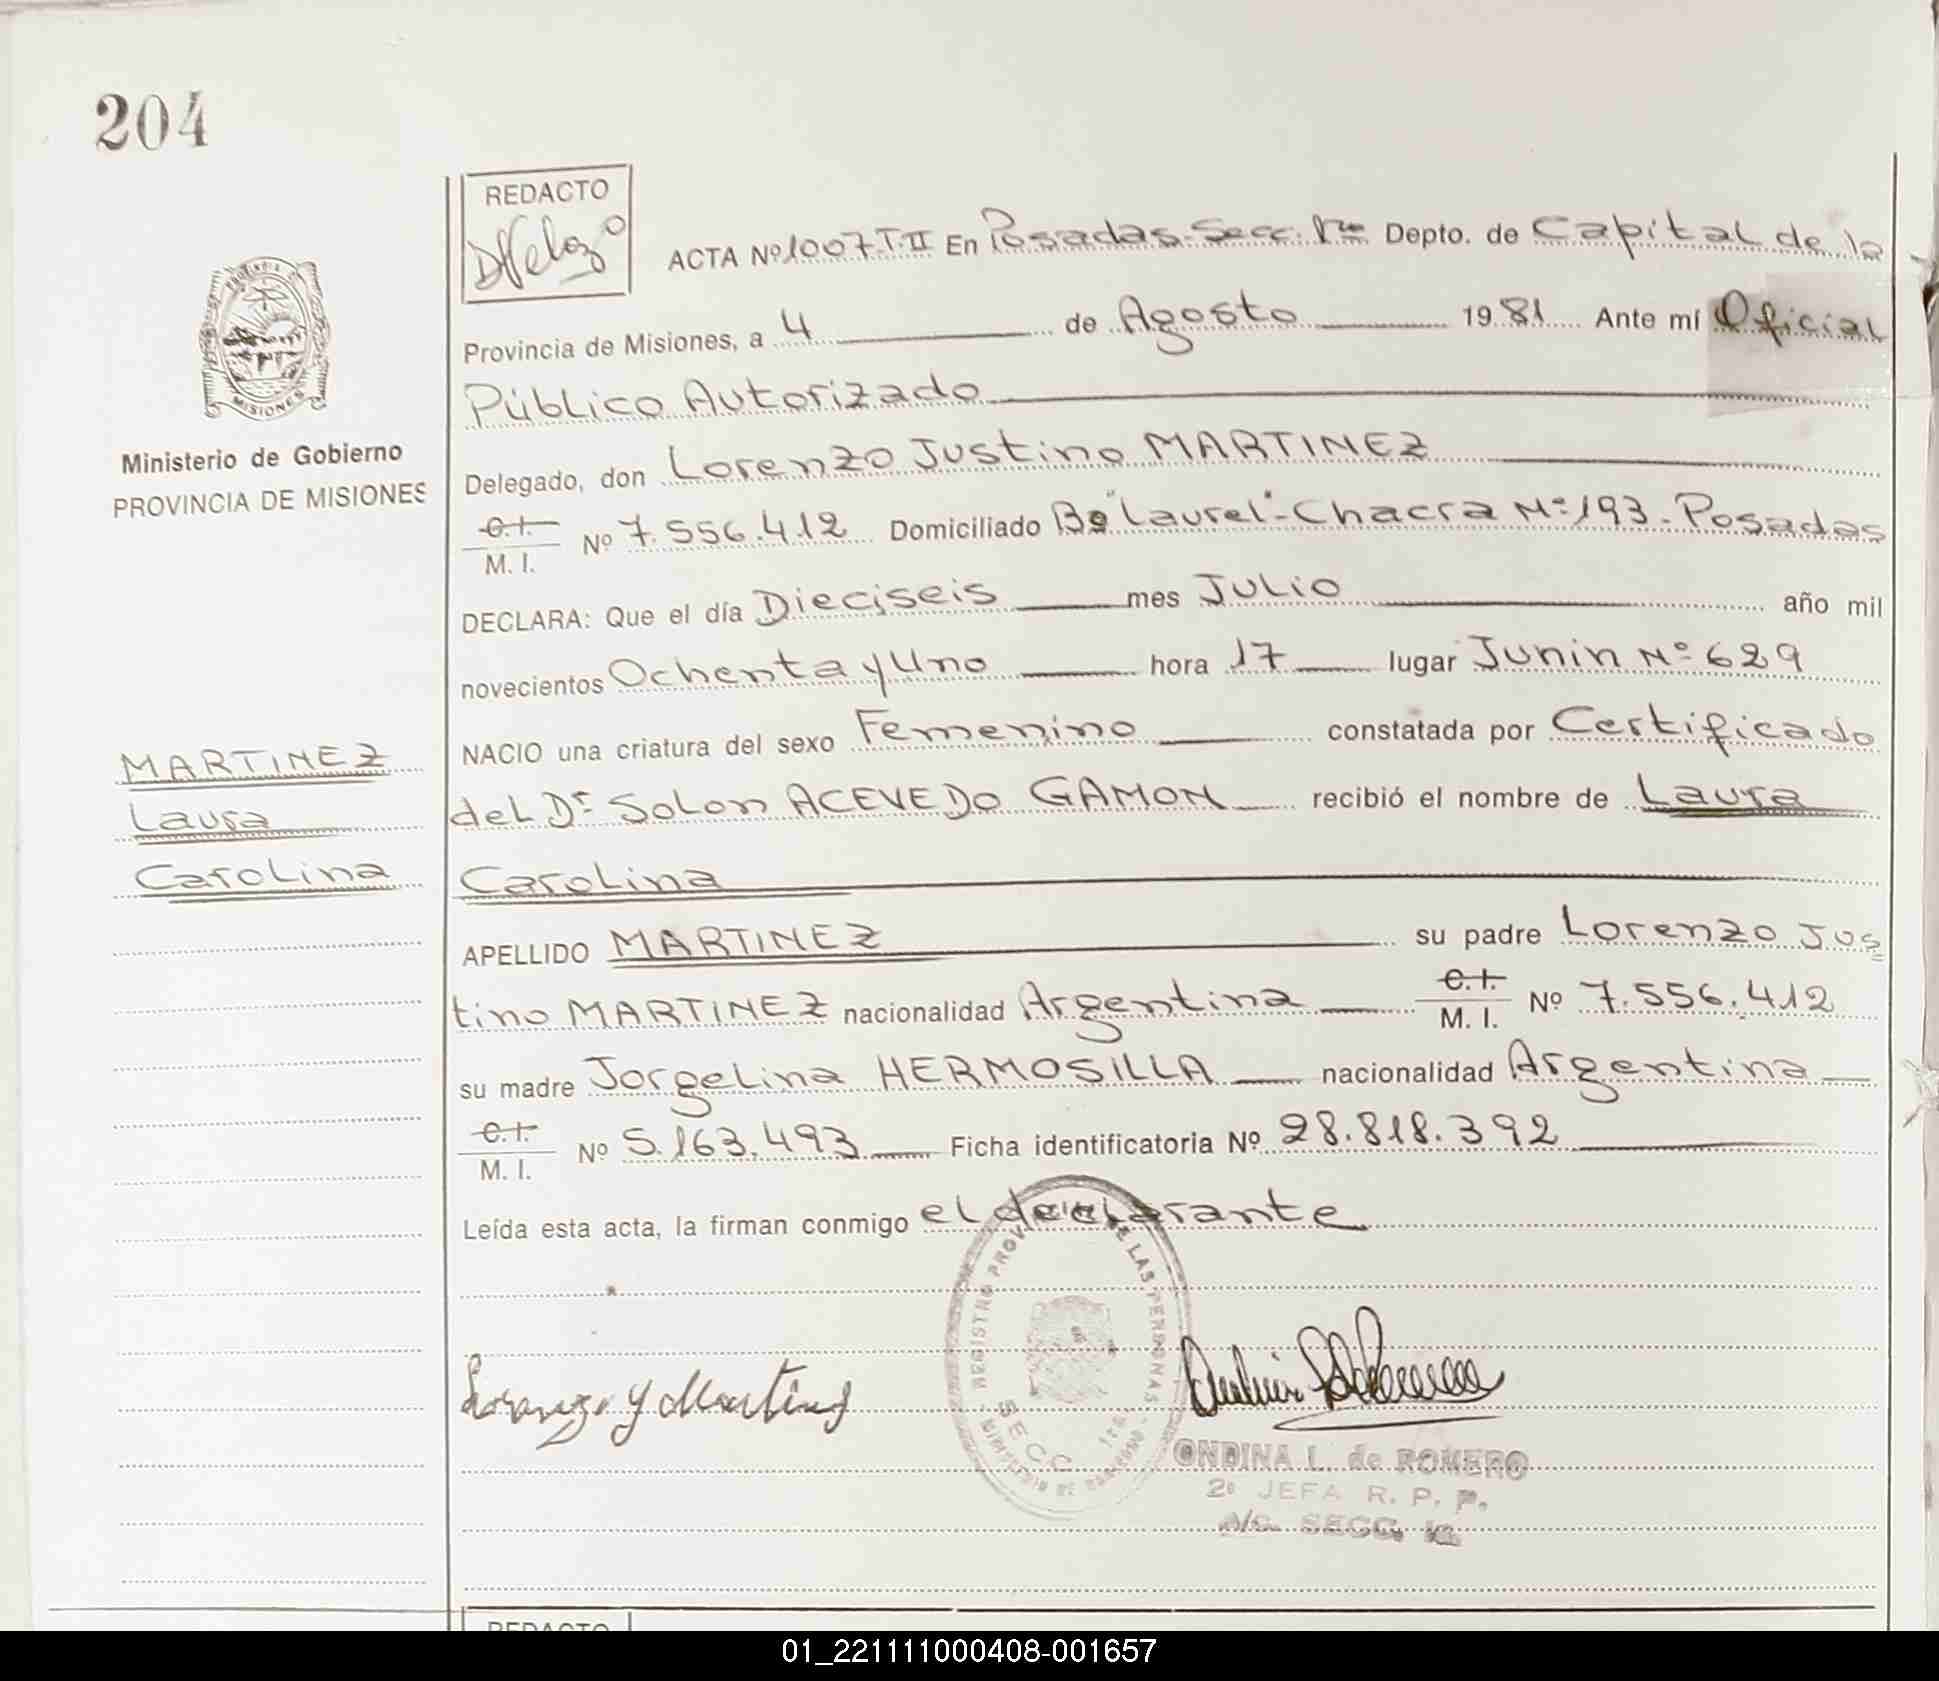 204
REDACTO
ACTA Nº 1007 T.II En Posadas-Secc. 1ra Depto. de Capital de la
Provincia de Misiones, a 4 de Agosto 1981 Ante mí Oficial
Público Autorizado
Ministerio de Gobierno
PROVINCIA DE MISIONES
Delegado, don Lorenzo Justino MARTINEZ
C.I. M. I. Nº 7.556.412 Domiciliado Bº "Laurel"-Chacra Nº 193-Posadas
DECLARA: Que el día Dieciseis mes Julio año mil
novecientos Ochenta y Uno hora 17 lugar Junin Nº 629
NACIO una criatura del sexo Femenino constatada por Certificado
MARTINEZ
Laura
Carolina
del Dr Solon ACEVEDO GAMON recibió el nombre de Laura
Carolina
APELLIDO MARTINEZ su padre Lorenzo Jus
tino MARTINEZ nacionalidad Argentina C.I. M. I. Nº 7.556.412
su madre Jorgelina HERMOSILLA nacionalidad Argentina
C.I. M. I. Nº 5.163.493 Ficha identificatoria Nº 28.818.392
Leída esta acta, la firman conmigo el declarante
REGISTRO PROV DE LAS PERSONAS
SECC 1ra
MINISTERIO DE GOBIERNO
MISIONES
ONDINA L. de ROMERO
2º JEFA R. P. P.
A/C. SECC. 1a.
REDACTO
01_221111000408-001657